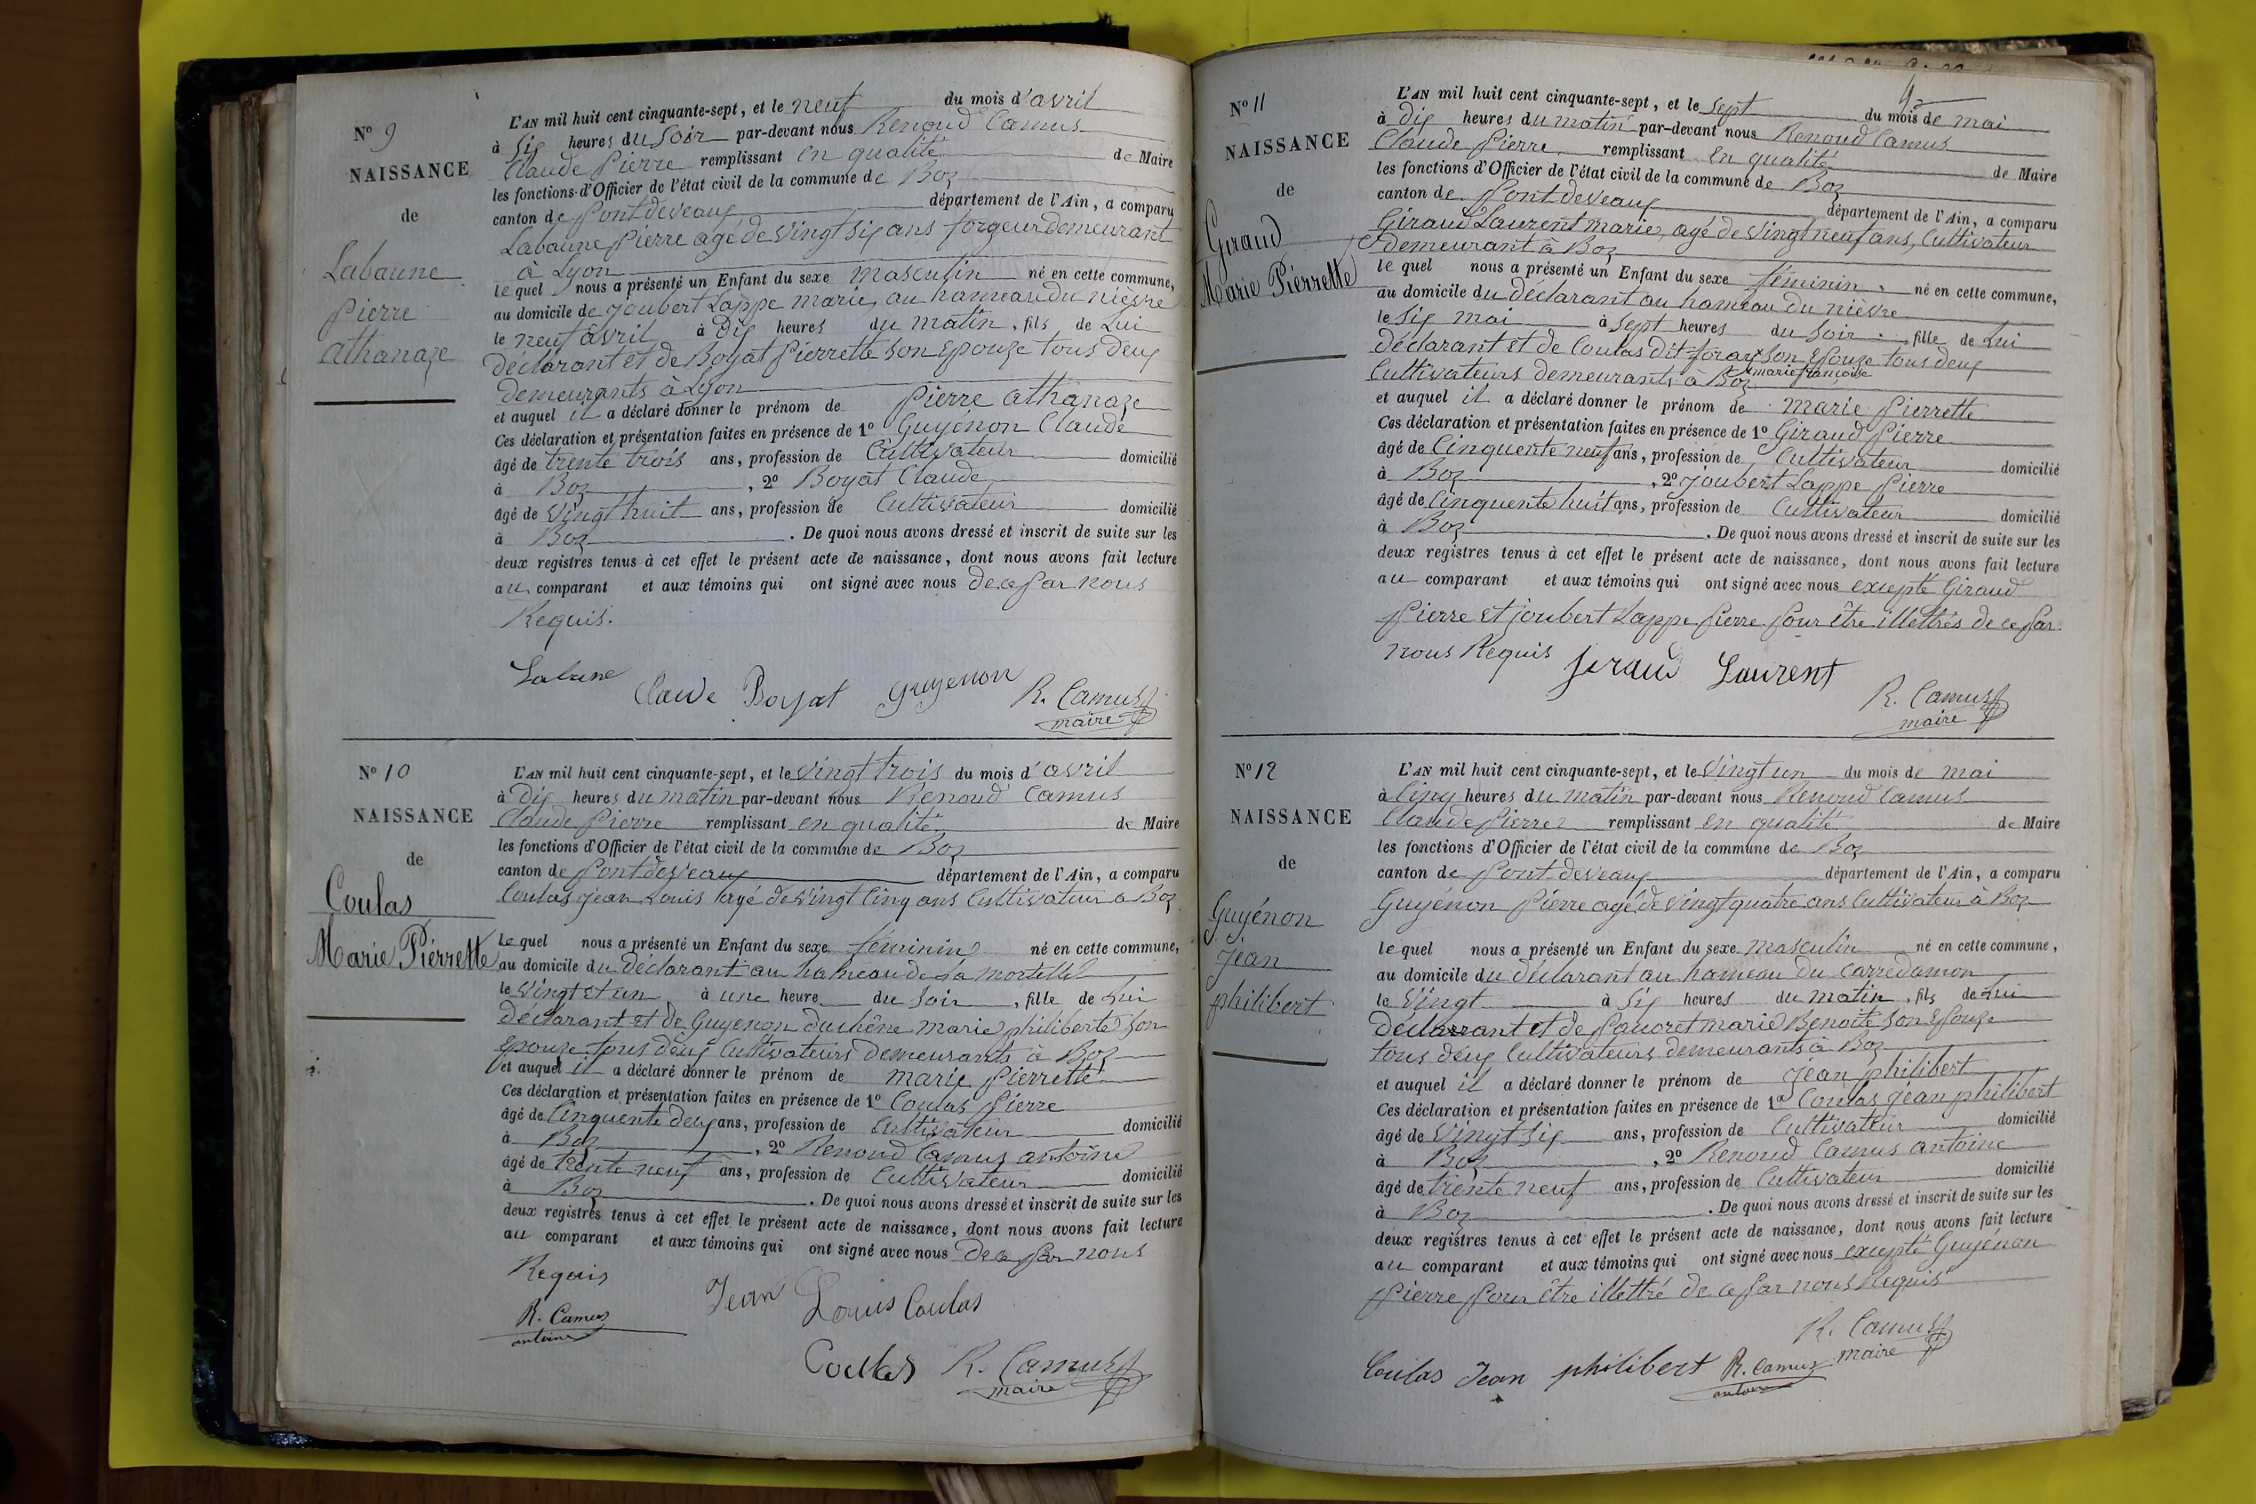 N° 9
NAISSANCE
de
Labaune
Pierre
athanaze
L'AN mil huit cent cinquante-sept, et le neuf du mois d'avril
à six heures du soir par-devant nous Renoud Camus
Claude Pierre remplissant en qualité de Maire
les fonctions d'Officier de l'état civil de la commune de Boz
canton de Pontdeveaux département de l'Ain, a comparu
Labaune Pierre agé de vingt six ans forgeur demeurant
à Lyon
le quel nous a présenté un Enfant du sexe masculin né en cette commune,
au domicile de joubert Lappe marie, au hameau du nièvre
le neuf avril à dix heures du matin, fils de Lui
déclarant et de Boyat Pierrette son Epouze tous deux
demeurants à Lyon
et auquel il a déclaré donner le prénom de Pierre athanaze
Ces déclaration et présentation faites en présence de 1° Guyénon Claude
âgé de trente trois ans, profession de Cultivateur domicilié
à Boz, 2° Boyat Claude
âgé de vingt huit ans, profession de Cultivateur domicilié
à Boz. De quoi nous avons dressé et inscrit de suite sur les
deux registres tenus à cet effet le présent acte de naissance, dont nous avons fait lecture
au comparant et aux témoins qui ont signé avec nous de ce par nous
Requis.
Labune Claude Boyat guyenon R. Camus
maire
N° 10
NAISSANCE
de
Coulas
Marie Pierrette
L'AN mil huit cent cinquante-sept, et le vingt trois du mois d'avril
à dix heures du matin par-devant nous Renoud Camus
Claude Pierre remplissant en qualité de Maire
les fonctions d'Officier de l'état civil de la commune de Boz
canton de Pontdeveaux département de l'Ain, a comparu
Coulas jean Louis agé de vingt Cinq ans Cultivateur a Boz
le quel nous a présenté un Enfant du sexe féminin né en cette commune,
au domicile du déclarant au hameau de la mortelle
le vingt et un à une heure du soir, fille de Lui
déclarant et de Guyenon duchêne marie philiberte son
Epouze tous deux Cultivateurs demeurants à Boz
et auquel il a déclaré donner le prénom de marie Pierrette
Ces déclaration et présentation faites en présence de 1° Coulas Pierre
âgé de Cinquente deux ans, profession de Cultivateur domicilié
à Boz, 2° Renoud Camus antoine
âgé de trente neuf ans, profession de Cultivateur domicilié
à Boz. De quoi nous avons dressé et inscrit de suite sur les
deux registres tenus à cet effet le présent acte de naissance, dont nous avons fait lecture
au comparant et aux témoins qui ont signé avec nous de ce par nous
Requis Jean Louis Coulas
R. Camus
antoine
Coulas R. Camus
maire
N° 11
NAISSANCE
de
Giraud
Marie Pierrette
L'AN mil huit cent cinquante-sept, et le sept du mois de mai
à dix heures du matin par-devant nous Renoud Camus
Claude Pierre remplissant en qualité de Maire
les fonctions d'Officier de l'état civil de la commune de Boz
canton de Pontdeveaux département de l'Ain, a comparu
Giraud Laurent marie, agé de vingt neuf ans, Cultivateur
demeurant à Boz
le quel nous a présenté un Enfant du sexe féminin, né en cette commune,
au domicile du déclarant au hameau du nièvre
le six mai à sept heures du soir, fille de Lui
déclarant et de Coulas dit foray son Epouze tous deux
marie françoise
Cultivateurs demeurants à Boz
et auquel il a déclaré donner le prénom de marie Pierrette
Ces déclaration et présentation faites en présence de 1° Giraud Pierre
âgé de Cinquente neuf ans, profession de Cultivateur domicilié
à Boz, 2° joubert Lappe Pierre
âgé de Cinquente huit ans, profession de Cultivateur domicilié
à Boz. De quoi nous avons dressé et inscrit de suite sur les
deux registres tenus à cet effet le présent acte de naissance, dont nous avons fait lecture
au comparant et aux témoins qui ont signé avec nous excepté Giraud
Pierre et joubert Lappe Pierre pour être illettrés de ce par
nous Requis Jiraud Laurent
R. Camus
maire
N° 12
NAISSANCE
de
Guyénon
jean
philibert
L'AN mil huit cent cinquante-sept, et le vingt un du mois de mai
à Cinq heures du matin par-devant nous Renoud Camus
Claude Pierre remplissant en qualité de Maire
les fonctions d'Officier de l'état civil de la commune de Boz
canton de Pontdeveaux département de l'Ain, a comparu
Guyénon Pierre agé de vingt quatre ans Cultivateur à Boz
le quel nous a présenté un Enfant du sexe masculin né en cette commune,
au domicile du déclarant au hameau du carredamon
le vingt à six heures du matin, fils de Lui
déclarant et de Poucret marie Benoite son Epouze
tous deux Cultivateurs demeurants à Boz
et auquel il a déclaré donner le prénom de jean philibert
Ces déclaration et présentation faites en présence de 1° Coulas jean philibert
âgé de vingt six ans, profession de Cultivateur domicilié
à Boz, 2° Renoud Camus antoine
âgé de trente neuf ans, profession de Cultivateur domicilié
à Boz. De quoi nous avons dressé et inscrit de suite sur les
deux registres tenus à cet effet le présent acte de naissance, dont nous avons fait lecture
au comparant et aux témoins qui ont signé avec nous excepté Guyénon
Pierre pour être illettré de ce par nous Requis
R. Camus
maire
Coulas Jean philibert R. Camus
antoine